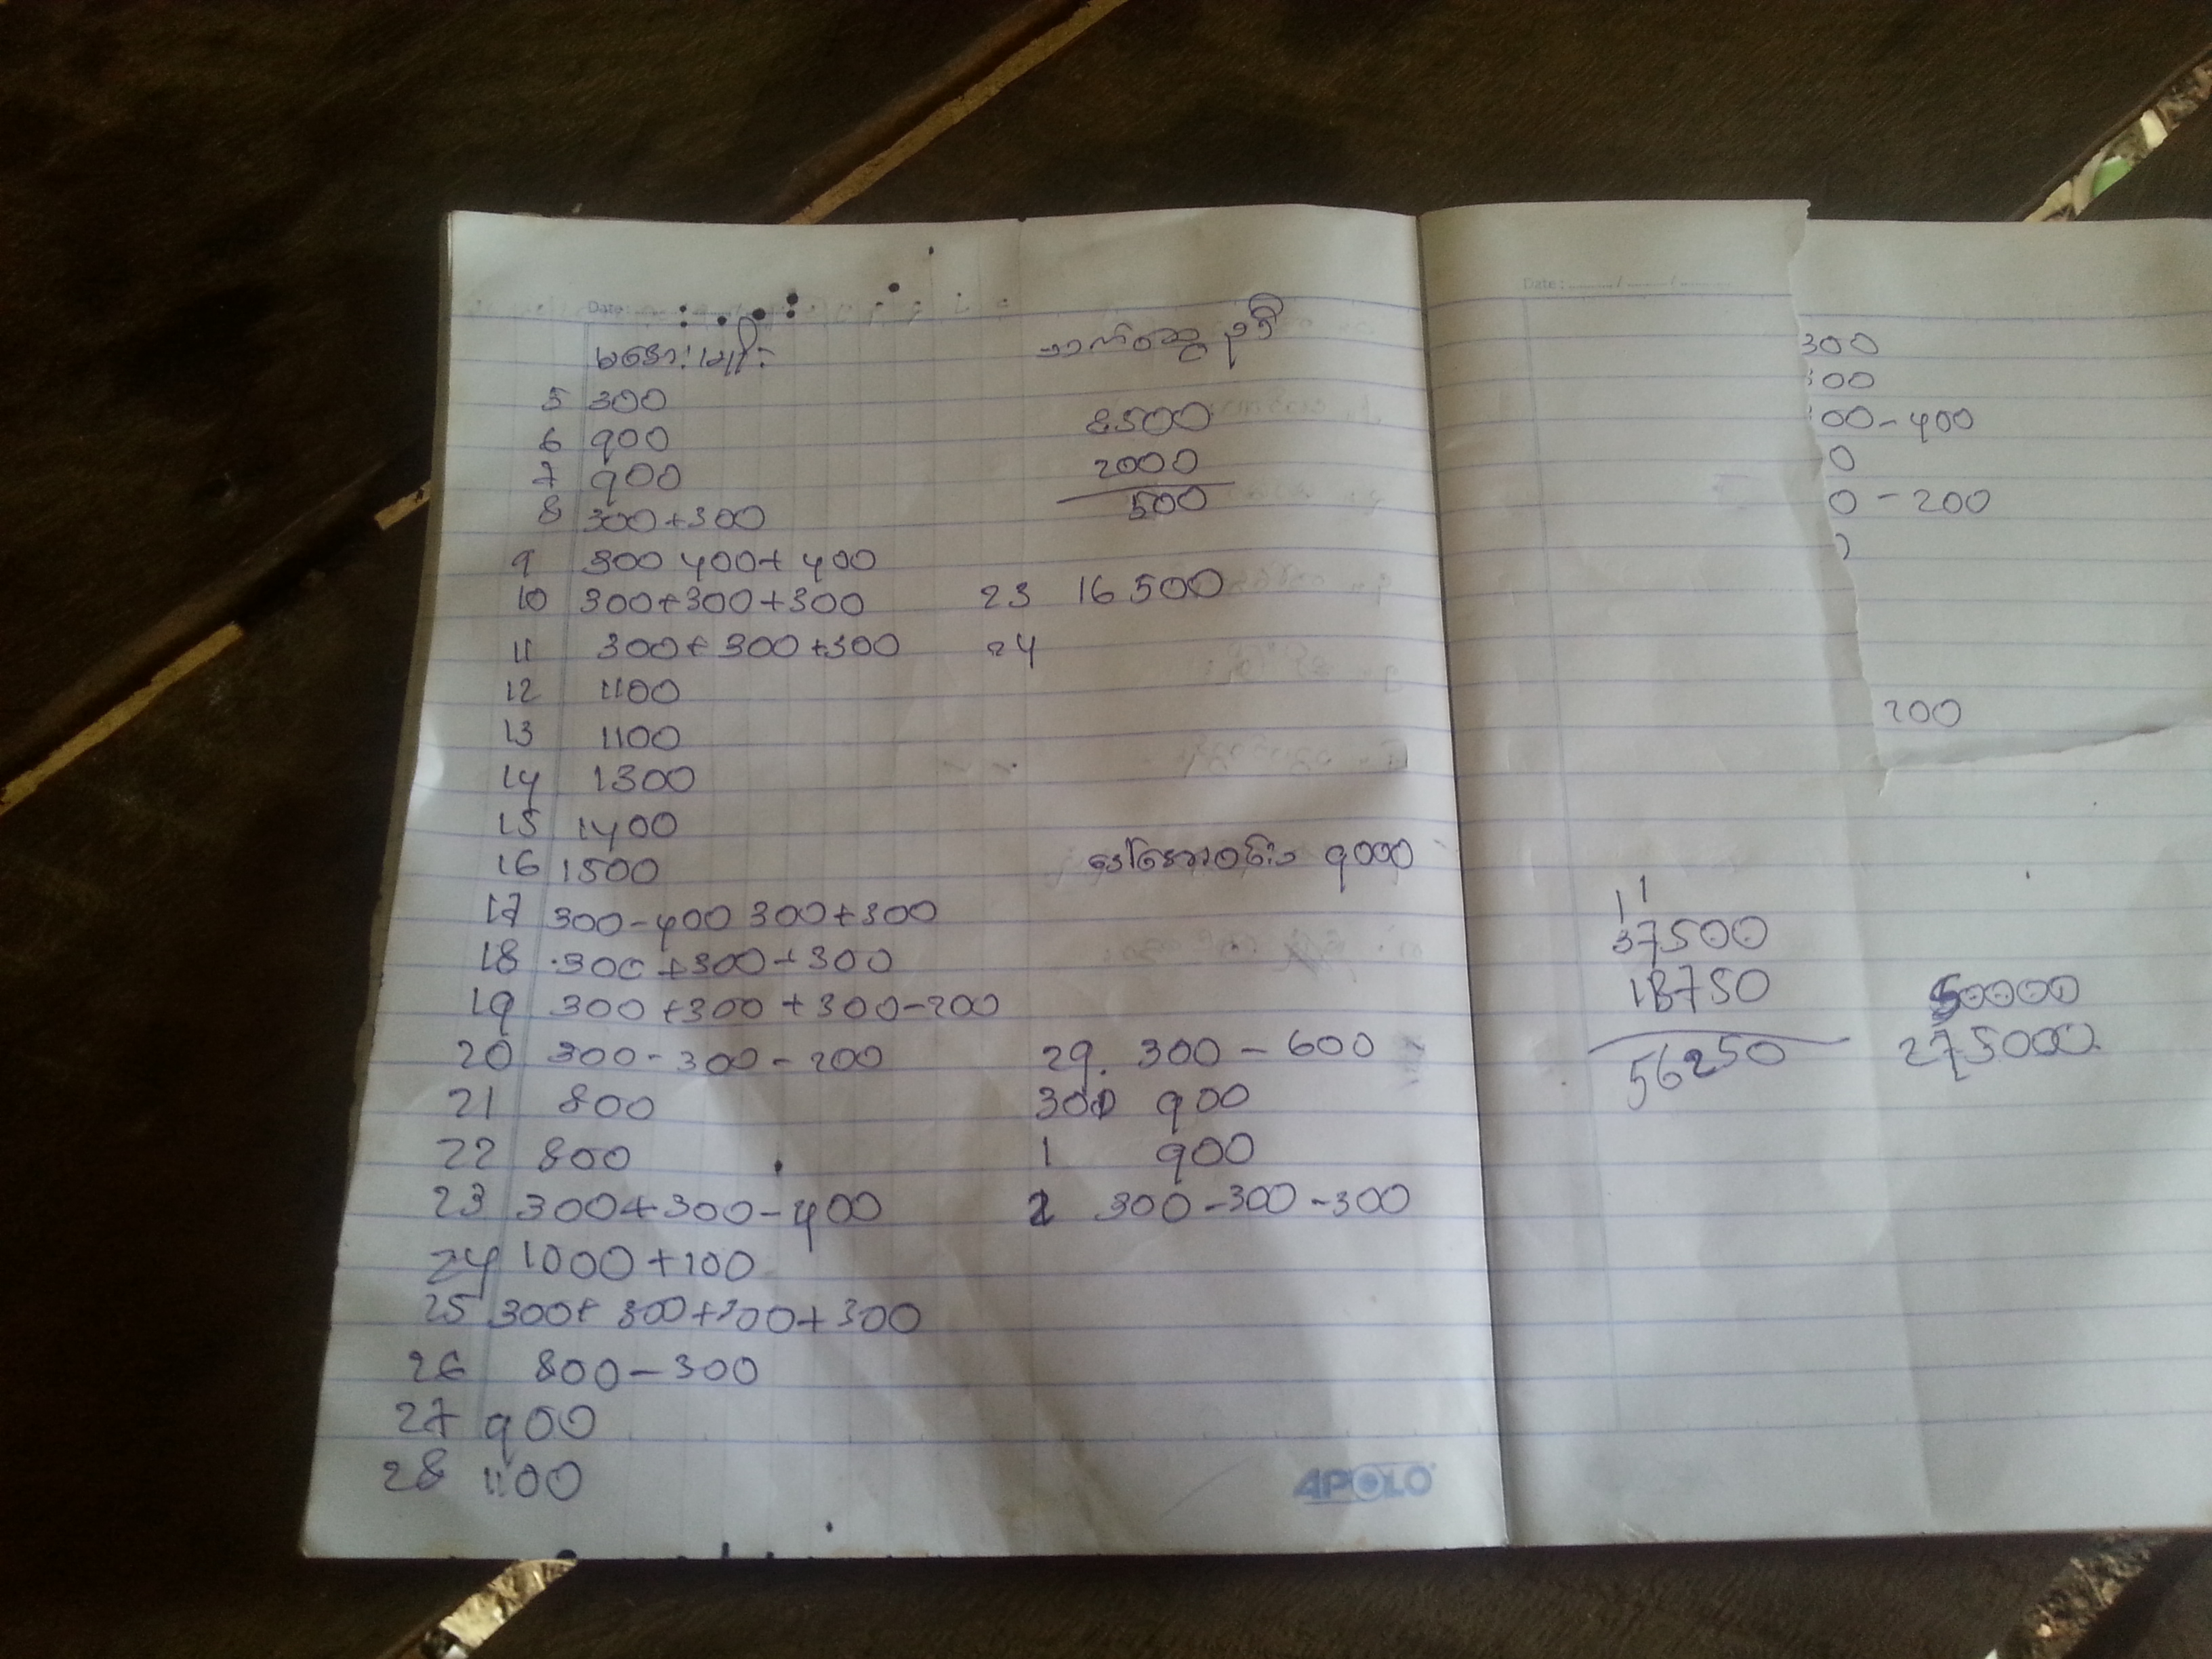 Date:
5 300
6 900
7 900
8 300+300
9 300 400+ 400
10 300+300+300
11 300+300+300
12 1100
13 1100
14 1300
15 1400
16 1500
17 300-400 300+300
18 300+300+300
19 300+300+300-200
20 300-300-200
21 800
22 800
23 300+300-400
24 1000+100
25 300+300+300+300
26 800-300
27 900
28 1100
2000
500
23 16500
24
9000
29. 300-600
900
1 900
2 300-300-300
APOLO
Date: ....../....../......
300
00-400
0
0-200
200
1 1
37500
18750
56250
50000
275000